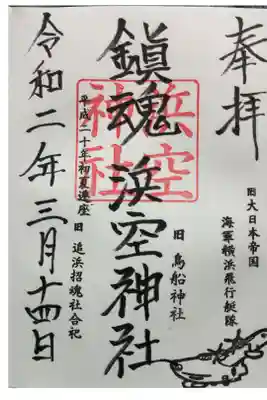 奉拝
旧大日本帝国
海軍横浜飛行艇隊
鎮魂 浜空神社
旧 鳥船神社
浜空
神社
平成二十年初夏遷座
旧 追浜招魂社合祀
令和二年三月十四日